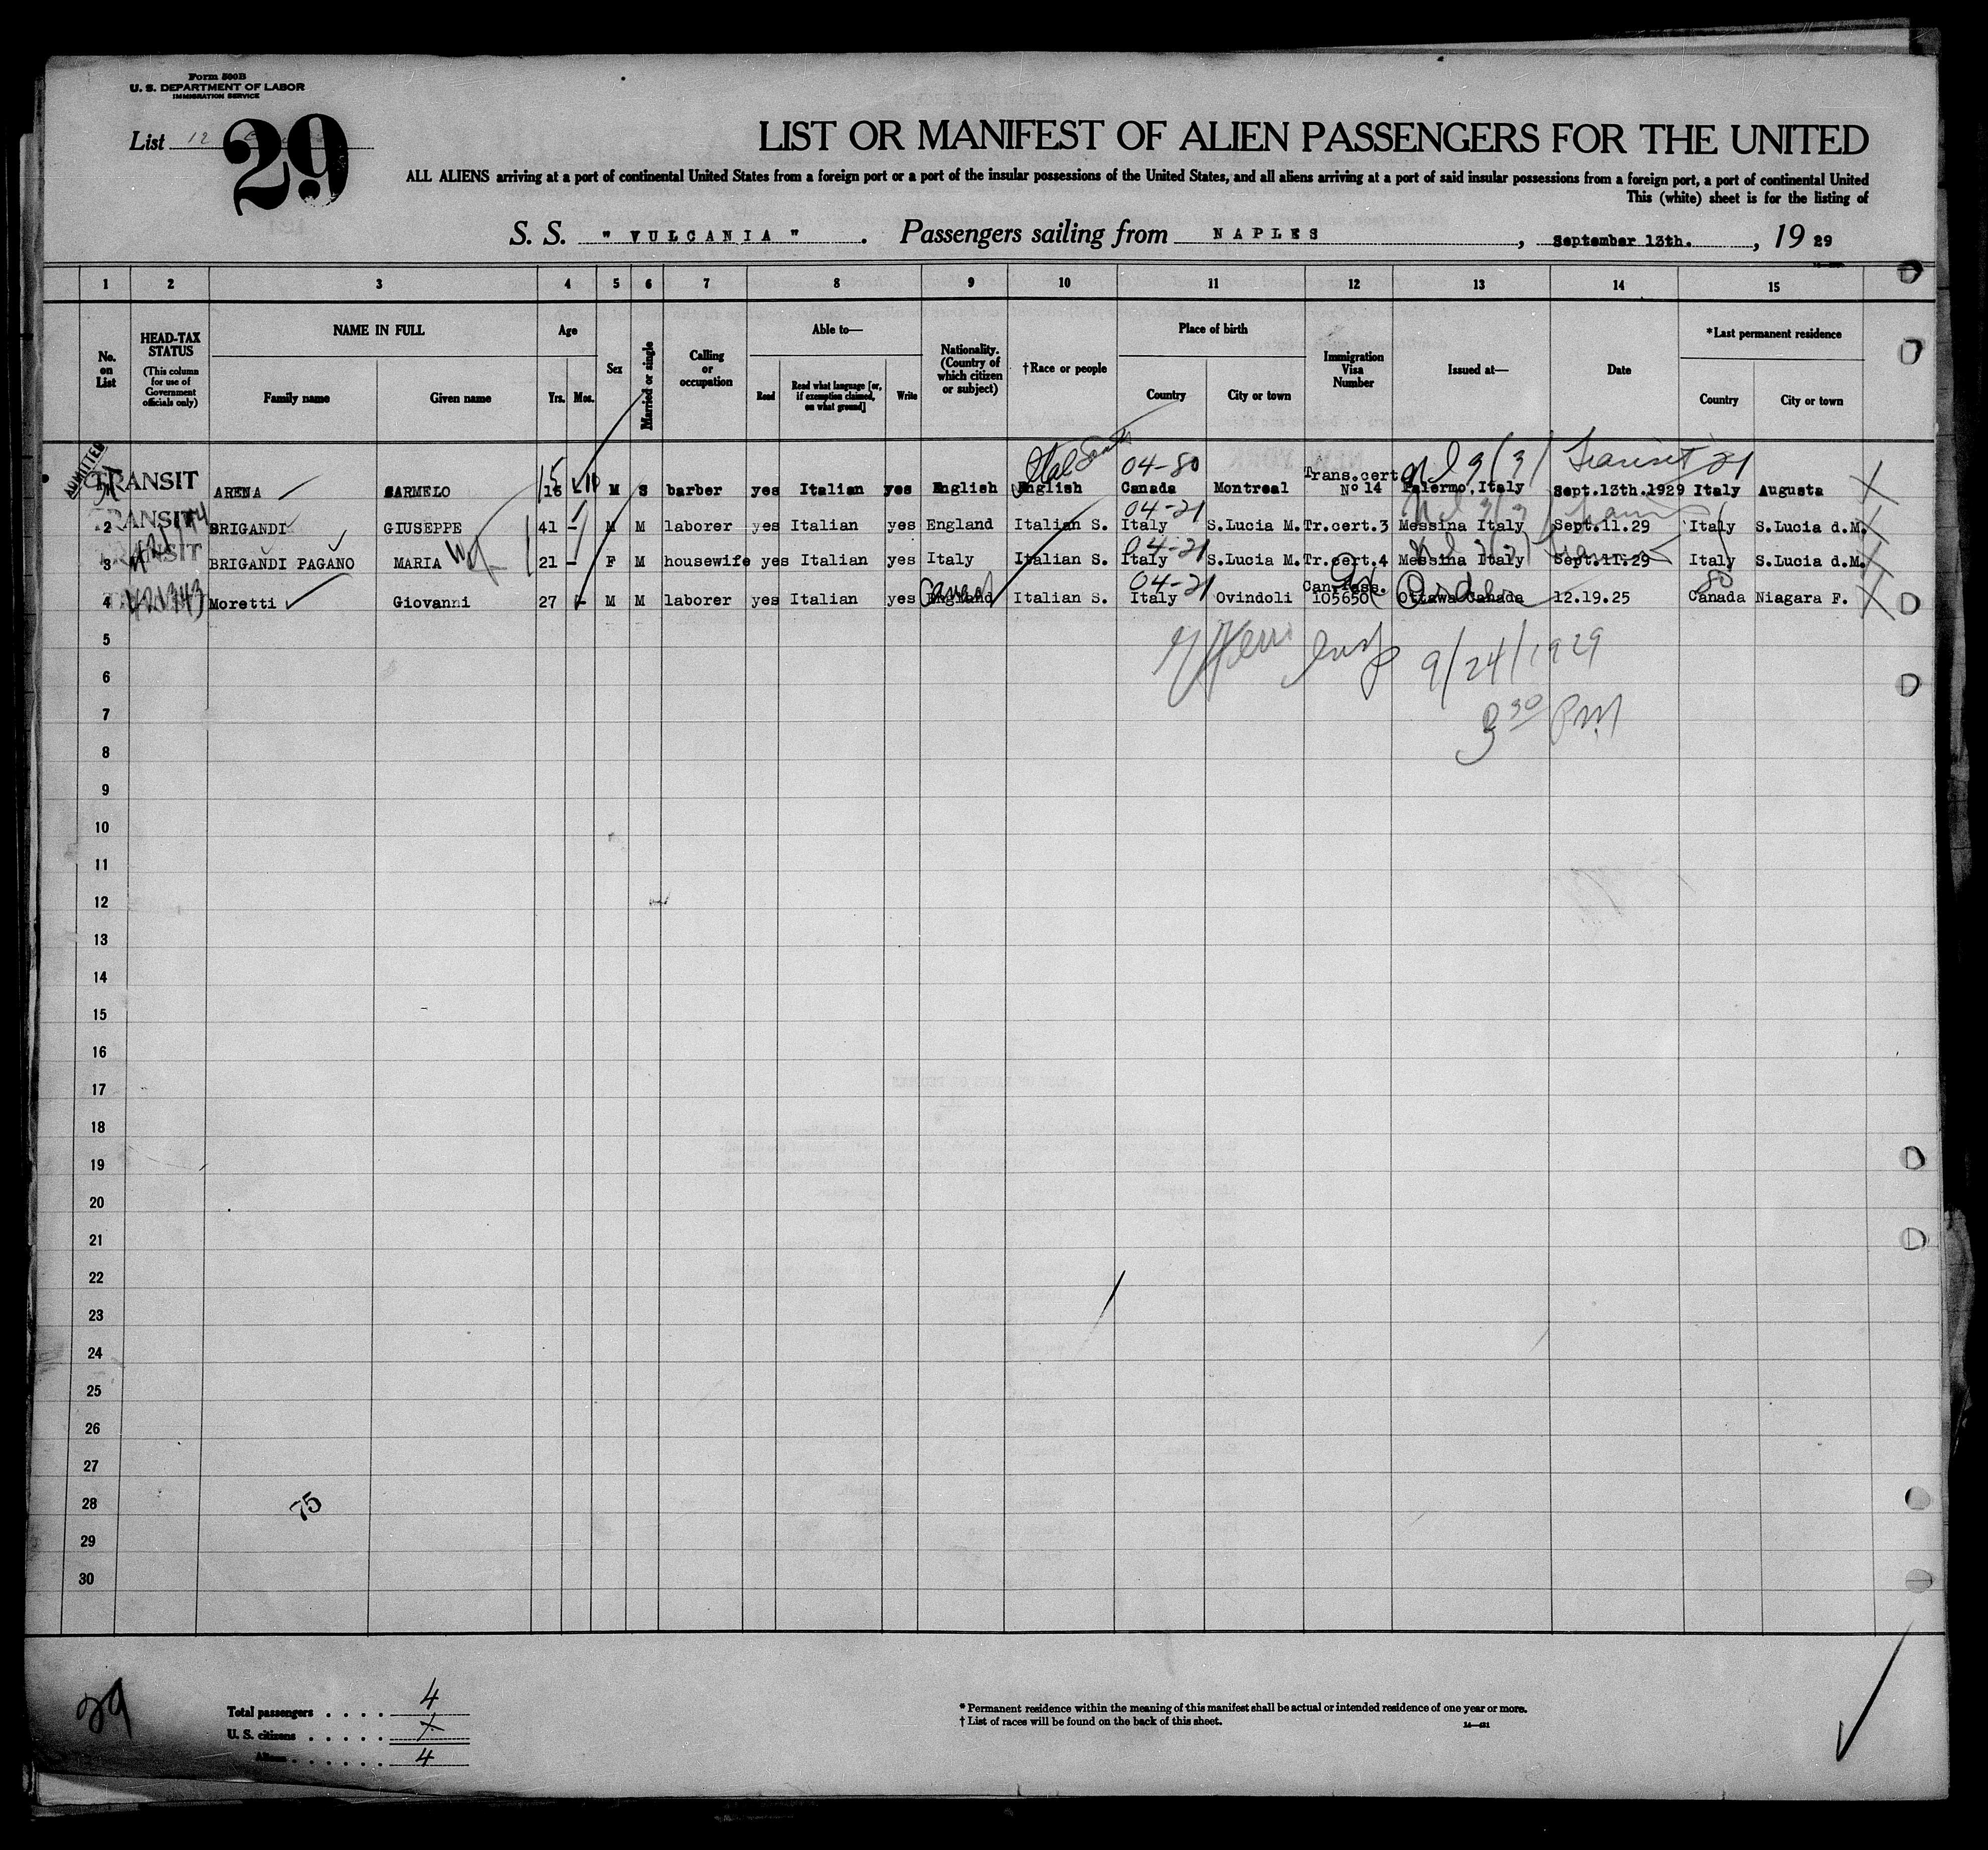 Form 500B
U. S. DEPARTMENT OF LABOR
IMMIGRATION SERVICE
List 12
29
LIST OR MANIFEST OF ALIEN PASSENGERS FOR THE UNITED
ALL ALIENS arriving at a port of continental United States from a foreign port or a port of the insular possessions of the United States, and all aliens arriving at a port of said insular possessions from a foreign port, a port of continental United
This (white) sheet is for the listing of
S. S. " VULCANIA " . Passengers sailing from NAPLES , September 13th. , 19 29
1 2 3 4 5 6 7 8 9 10 11 12 13 14 15
No. on List
HEAD-TAX STATUS
(This column for use of Government officials only)
NAME IN FULL
Family name Given name
Age
Yrs. Mos.
Sex
Married or single
Calling or occupation
Able to—
Read
Read what language [or, if exemption claimed, on what ground]
Write
Nationality. (Country of which citizen or subject)
†Race or people
Place of birth
Country City or town
Immigration Visa Number
Issued at—
Date
*Last permanent residence
Country City or town
ADMITTED
Ital South 04-80 Transit 21
15 10
TRANSIT ARENA SARMELO 16 M S barber yes Italian yes English English Canada Montreal Trans.cert Nº 14 Palermo, Italy Sept.13th.1929 Italy Augusta
04-21
TRANSIT
2 BRIGANDI GIUSEPPE 41 - M M laborer yes Italian yes England Italian S. Italy S.Lucia M. Tr.cert.3 Messina Italy Sept.11.29 Italy S.Lucia d.M.
04-21
TRANSIT
3 BRIGANDI PAGANO MARIA 21 - F M housewife yes Italian yes Italy Italian S. Italy S.Lucia M. Tr.cert.4 Messina Italy Sept.11.29 Italy S.Lucia d.M.
04-21 80
4 Moretti Giovanni 27 - M M laborer yes Italian yes England Italian S. Italy Ovindoli Can.Pass. 105650 Ottawa Canada 12.19.25 Canada Niagara F.
5
Insp 9/24/1929
6
7
3 30 PM
8
9
10
11
12
13
14
15
16
17
18
19
20
21
22
23
24
25
26
27
28
75
29
30
29
Total passengers . . . . 4
U. S. citizens . . . . . X
Aliens . . . . . . 4
* Permanent residence within the meaning of this manifest shall be actual or intended residence of one year or more.
† List of races will be found on the back of this sheet.
14—421